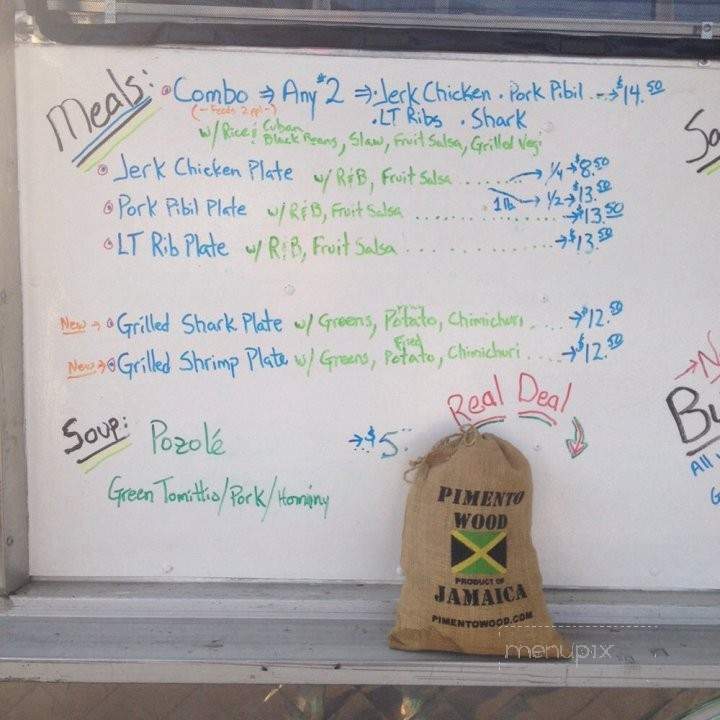 Meals:
• Combo ⇒ Any #2 ⇒ • Jerk Chicken • Pork Pibil --→ $14.50
(- Feeds 2 ppl -) • LT Ribs • Shark
w/ Rice & Cuban Black Beans, Slaw, Fruit Salsa, Grilled Vegi
• Jerk Chicken Plate w/ R&B, Fruit Salsa .... → 1/4 → $8.50
1 lb → 1/2 → $13.50
• Pork Pibil Plate w/ R&B, Fruit Salsa .... → $13.50
• LT Rib Plate w/ R&B, Fruit Salsa .... → $13.50
New → • Grilled Shark Plate w/ Greens, Potato, Chimichuri .... → $12.50
New → • Grilled Shrimp Plate w/ Greens, Fried Potato, Chimichuri .... → $12.50
Real Deal
Soup: Pozolé → $5
Green Tomittio/Pork/Hominy
So
→ N
Bu
All
G
PIMENTO
WOOD
PRODUCT OF
JAMAICA
PIMENTOWOOD.COM
menupix